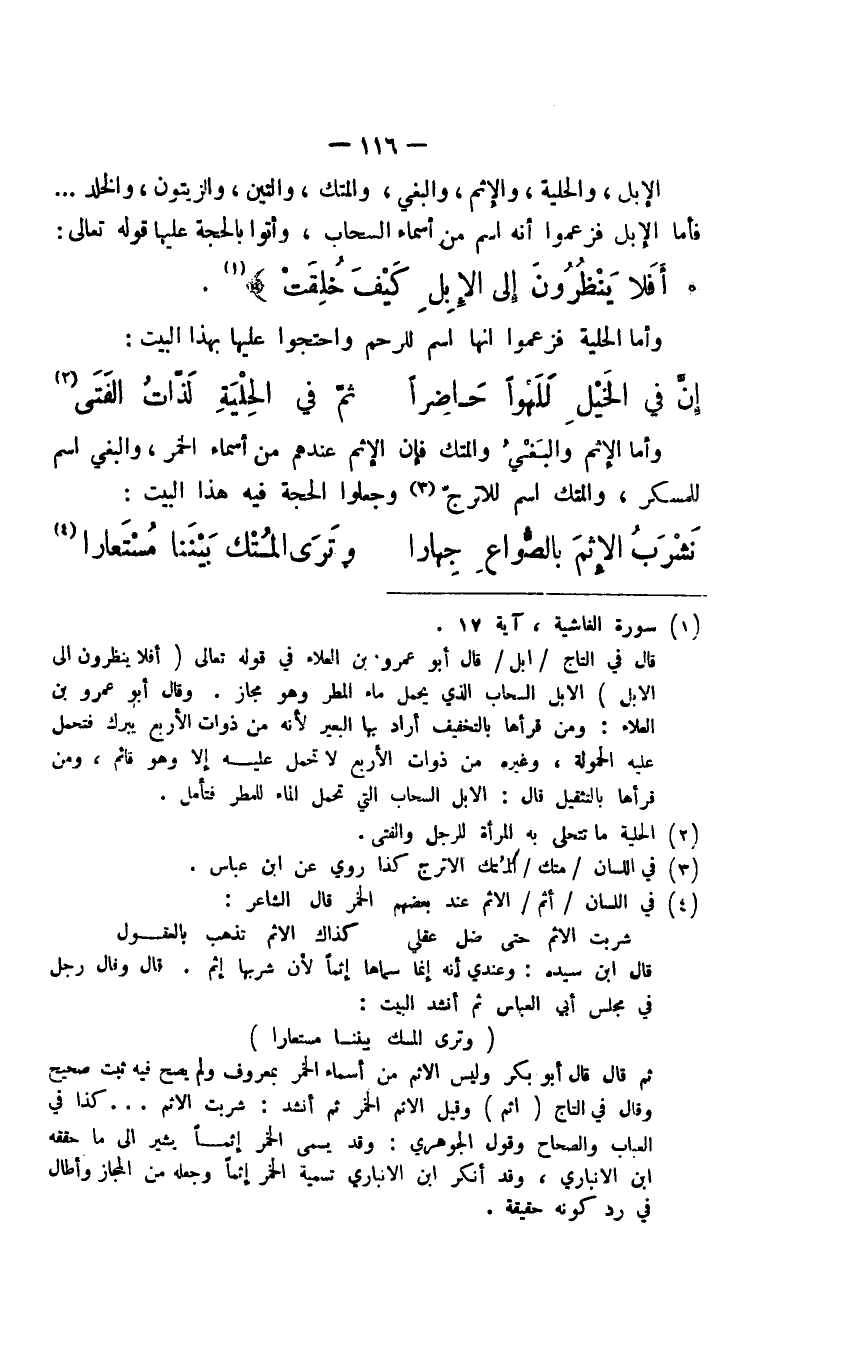 — ١١٦ —
الإبل ، والحلية ، والإثم ، والبغي ، والمتك ، والتين ، والزيتون ، والخلد ...
فأما الإبل فزعموا أنه اسم من أسماء السحاب ، وأتوا بالحجة عليها قوله تعالى :
﴿ أَفَلا يَنْظُرُونَ إلى الإِبِلِ كَيْفَ خُلِقَتْ ﴾(١) .
وأما الحلية فزعموا انها اسم للرحم واحتجوا عليها بهذا البيت :
إنَّ في الخَيْلِ لَلَهْواً حَـاضِراً ثمّ في الحِلْيَةِ لَذّاتُ الفَتَى(٢)
وأما الإثم والبَغْيُ والمتك فإن الإثم عندهم من أسماء الخمر ، والبغي اسم
للمسكر ، والمتك اسم للاترجّ(٣) وجعلوا الحجة فيه هذا البيت :
نَشْرَبُ الإِثمَ بالصُّواعِ جِهارا وتَرَى المُتْك بَيْنَنا مُسْتَعارا(٤)
(١) سورة الغاشية ، آية ١٧ .
قال في التاج / ابل / قال أبو عمرو بن العلاء في قوله تعالى ( أفلا ينظرون الى
الابل ) الابل السحاب الذي يحمل ماء المطر وهو مجاز . وقال أبو عمرو بن
العلاء : ومن قرأها بالتخفيف أراد بها البعير لأنه من ذوات الأربع يبرك فتحمل
عليه الحمولة ، وغيره من ذوات الأربع لا تحمل عليـــه إلا وهو قائم ، ومن
قرأها بالتثقيل قال : الابل السحاب التي تحمل الماء للمطر فتأمل .
(٢) الحلية ما تتحلى به المرأة للرجل والفتى .
(٣) في اللسان / متك / المُتك الاترج كذا روي عن ابن عباس .
(٤) في اللسان / أثم / الاثم عند بعضهم الخمر قال الشاعر :
شربت الاثم حتى ضل عقلي كذاك الاثم تذهب بالعقـــول
قال ابن سيده : وعندي أنه إنما سماها إثماً لأن شربها إثم . قال وقال رجل
في مجلس أبي العباس ثم أنشد البيت :
( وترى المسك بيننــا مستعارا )
ثم قال قال أبو بكر وليس الاثم من أسماء الخمر بمعروف ولم يصح فيه ثبت صحيح
وقال في التاج ( اثم ) وقيل الاثم الخمر ثم أنشد : شربت الاثم . . . كذا في
العباب والصحاح وقول الجوهري : وقد يسمى الخمر إثمـــاً يشير الى ما حققه
ابن الانباري ، وقد أنكر ابن الانباري تسمية الخمر إثماً وجعله من المجاز وأطال
في رد كونه حقيقة .